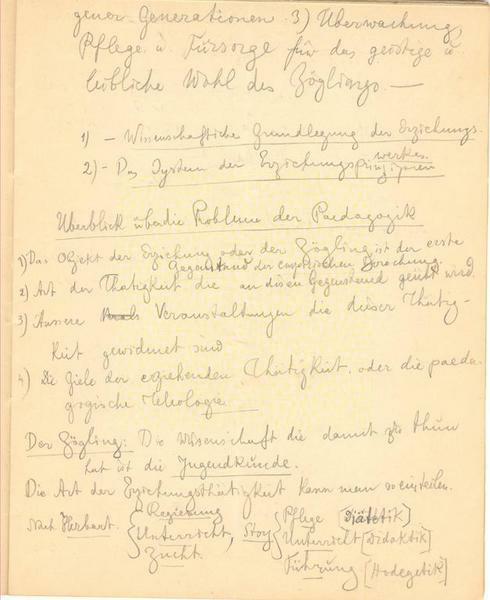 gener Generationen. 3) Überwachung,
Pflege u. Fürsorge für das geistige u.
leibliche Wohl des Zöglings. —
1) — Wissenschaftliche Grundlegung der Erziehungs.
2) - Das System der Erziehungsprinzipien werkes.
Überblick über die Probleme der Paedagogik
1) Das Objekt der Erziehung oder der Zögling ist der erste
Gegenstand der empirischen Forschung.
2) Art der Thätigkeit die an disen Gegenstand geübt wird.
3) Äussere Veranstaltungen die diser Thätig-
keit gewidmet sind
4) Die Ziele der erziehenden Thätigkeit, oder die paeda-
gogische Teleologie.
Der Zögling: Die Wissenschaft die damit zu thun
hat ist die Jugendkunde.
Die Art der Erziehungsthätigkeit kann man so einteilen.
Nach Herbart. { Regierung
Unterricht,
Zucht.
Stoy { Pflege [Diätetik]
Unterricht [Didaktik]
Führung [Hodegetik]